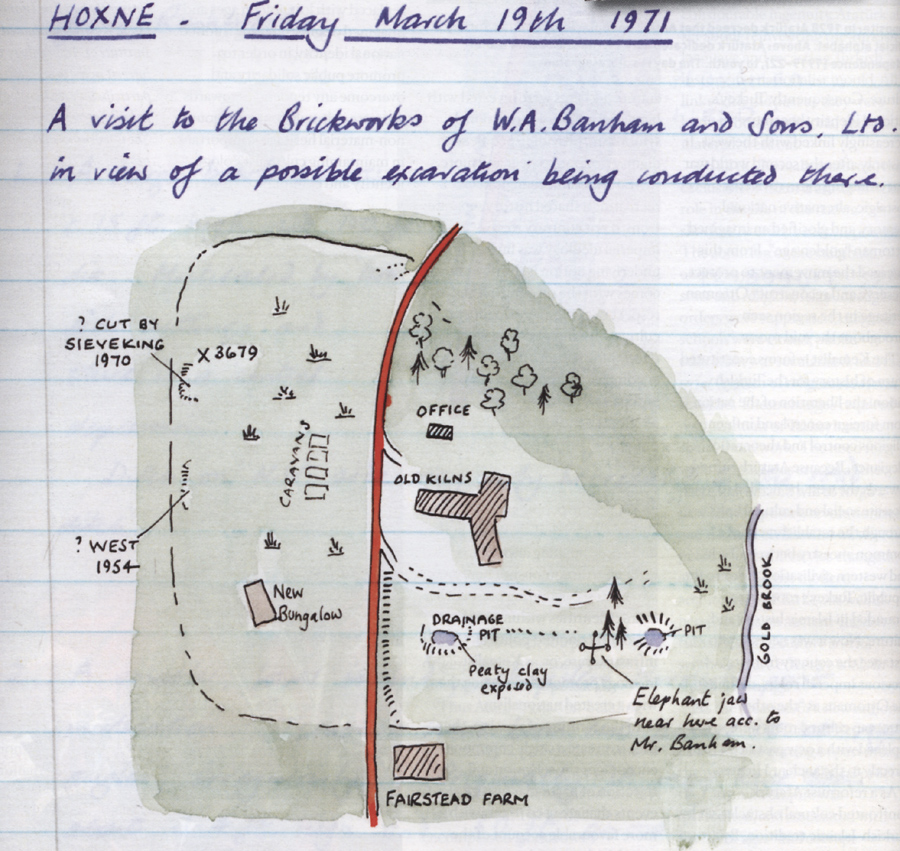 HOXNE - Friday March 19th 1971
A visit to the Brickworks of W.A. Banham and Sons, Ltd.
in view of a possible excavation being conducted there.
? CUT BY
SIEVEKING
1970
X 3679
OFFICE
CARAVANS
OLD KILNS
? WEST
1954
New
Bungalow
DRAINAGE
PIT
PIT
Peaty clay
exposed
GOLD BROOK
Elephant jaw
near here acc. to
Mr. Banham.
FAIRSTEAD FARM